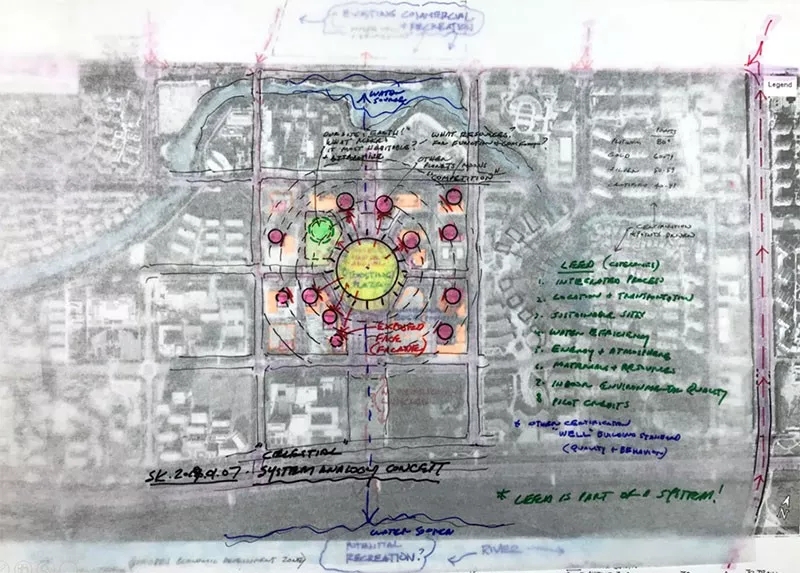 EXISTING COMMERCIAL
+ RECREATION
WATER
SOURCE
Legend
OUR SITE "EARTH"
WHAT MAKES
IT MOST HABITABLE?
WHAT RESOURCES
FOR FUNCTION + COMFORT?
OTHER
PLANETS/MOONS
"COMPETITION"
POINTS
PLATINUM 80+
GOLD 60-79
SILVER 50-59
CERTIFIED 40-49
CERTIFICATION
POINTS DRIVEN
LEED (CATEGORIES)
1. INTEGRATED PROCESS
2. LOCATION + TRANSPORTATION
3. SUSTAINABLE SITES
4. WATER EFFICIENCY
5. ENERGY + ATMOSPHERE
6. MATERIALS + RESOURCES
7. INDOOR ENVIRONMENTAL QUALITY
8. PILOT CREDITS
EXISTING
PLAZA
EXPOSED
FACE
(FACADE)
* OTHER CERTIFICATION
"WELL" BUILDING STANDARD
(QUALITY + BEHAVIOR)
"CELESTIAL"
SYSTEM ANALOGY CONCEPT
* LEED IS PART OF A SYSTEM!
WATER SOURCE
POTENTIAL
RECREATION?
RIVER
ECONOMIC DEVELOPMENT ZONE)